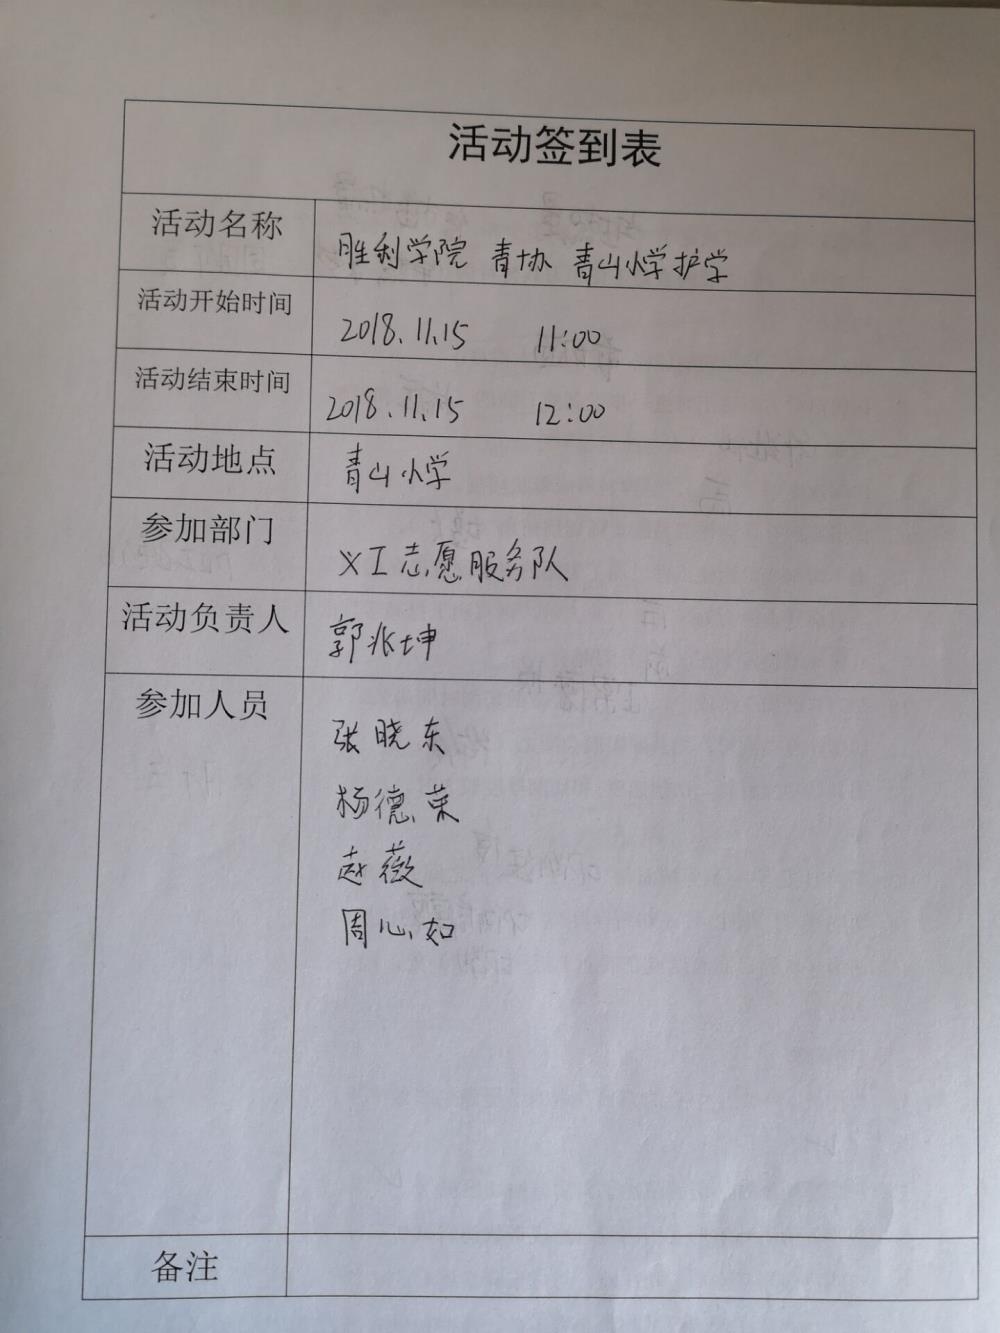 活动签到表
活动名称 胜利学院 青协 青山小学护学
活动开始时间 2018.11.15 11:00
活动结束时间 2018.11.15 12:00
活动地点 青山小学
参加部门 义工志愿服务队
活动负责人 郭兆坤
参加人员 张晓东
杨德荣
赵薇
周心如
备注